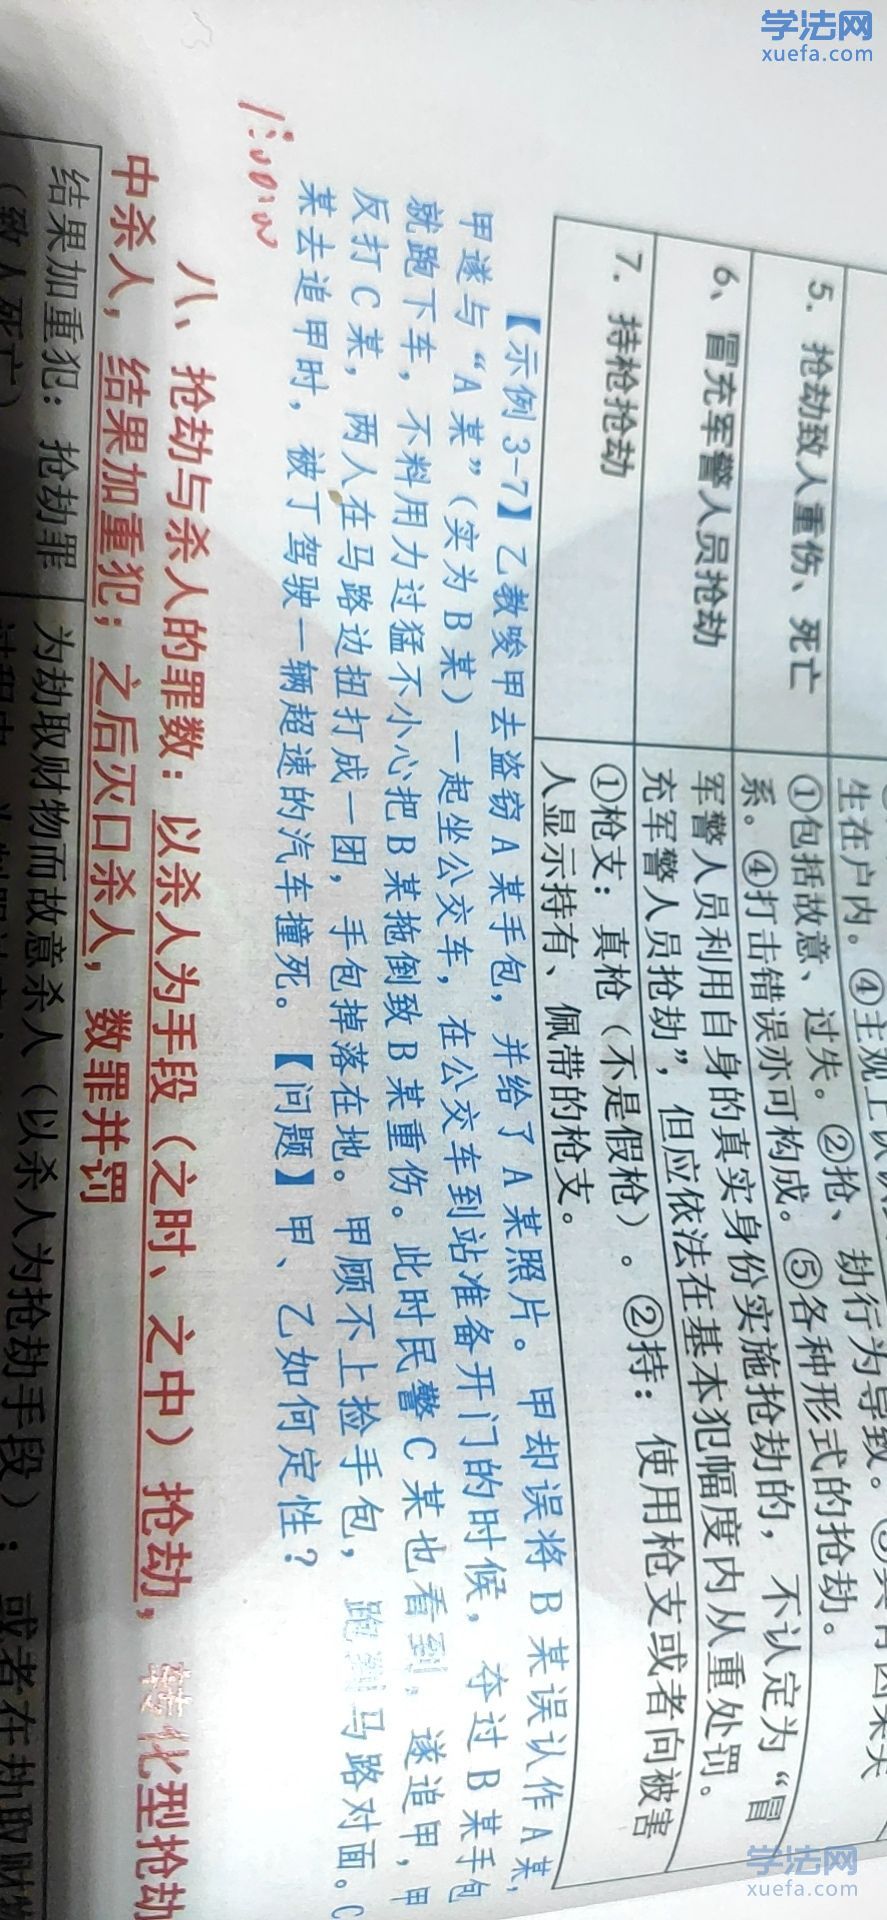 学法网
xuefa.com
生在户内。④主观上
5. 抢劫致人重伤、死亡
①包括故意、过失。②抢、劫行为导致。
系。④打击错误亦可构成。⑤各种形式的抢劫。
6、冒充军警人员抢劫
军警人员利用自身的真实身份实施抢劫的，不认定为“冒
充军警人员抢劫”，但应依法在基本犯幅度内从重处罚。
7. 持枪抢劫
①枪支：真枪（不是假枪）。②持：使用枪支或者向被害
人显示持有、佩带的枪支。
【示例 3-7】乙教唆甲去盗窃 A 某手包，并给了 A 某照片。甲却误将 B 某误认作 A 某，
甲遂与“A 某”（实为 B 某）一起坐公交车，在公交车到站准备开门的时候，夺过 B 某手包
就跑下车，不料用力过猛不小心把 B 某拖倒致 B 某重伤。此时民警 C 某也看到，遂追甲，甲
反打 C 某，两人在马路边扭打成一团，手包掉落在地。甲顾不上捡手包，跑到马路对面。C
某去追甲时，被丁驾驶一辆超速的汽车撞死。【问题】甲、乙如何定性？
八、抢劫与杀人的罪数：以杀人为手段（之时、之中）抢劫，转化型抢劫
中杀人，结果加重犯；之后灭口杀人，数罪并罚
结果加重犯：抢劫罪
（致人死亡）
为劫取财物而故意杀人（以杀人为抢劫手段）；或者在劫取财
学法网
xuefa.com